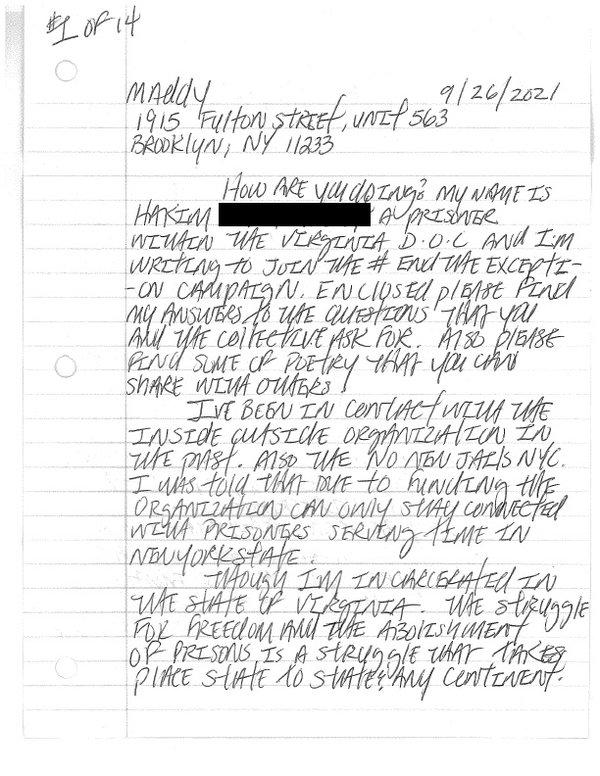 #1 OF 14
MAddy 9/26/2021
1915 Fulton Street, Unit 563
Brooklyn, NY 11233
How are you doing? My name is
Hakim a prisoner
within the Virginia D.O.C and I'm
writing to join the # End the Excepti-
-on campaign. Enclosed please find
my answers to the questions that you
and the collective ask for. Also please
find some of poetry that you can
share with others!
I've been in contact with the
Inside Outside organization in
the past. Also the No New Jails NYC.
I was told that due to funding the
organization can only stay connected
with prisoners serving time in
New York State.
Though I'm incarcerated in
the State of Virginia. The struggle
for freedom and the abolishment
of prisons is a struggle that takes
place state to state & any continent.